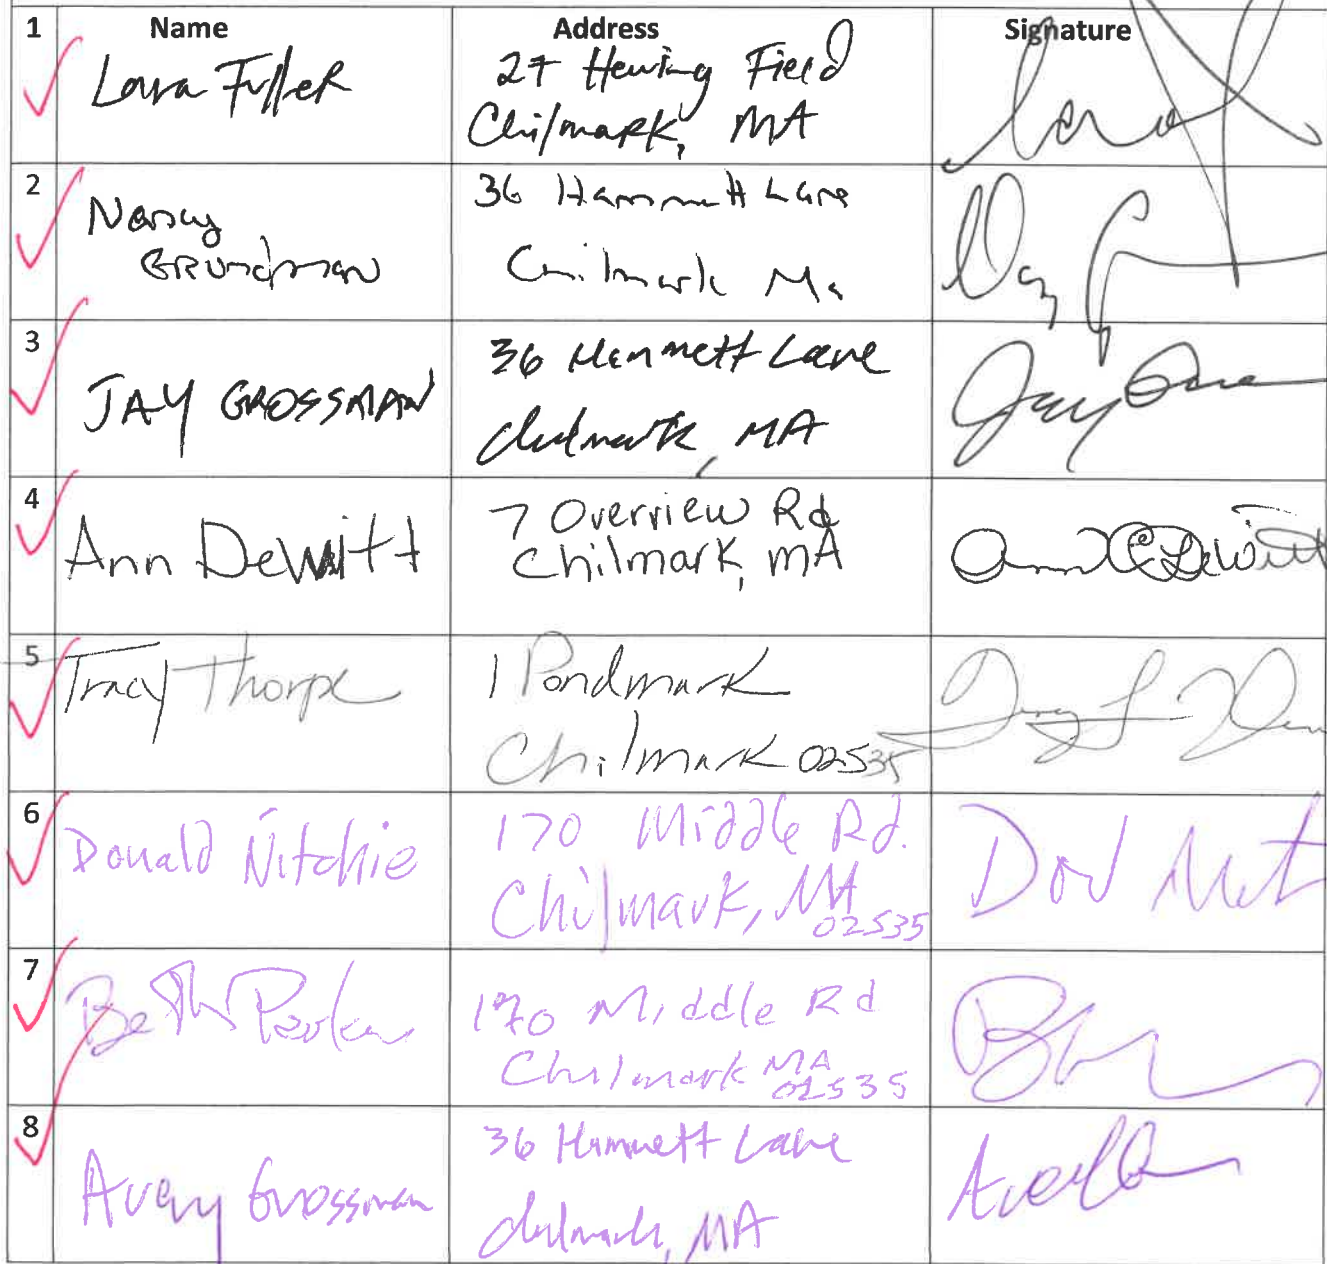 1 Name Address Signature
Lara Fuller
27 Hewing Field
Chilmark, MA
2
Nancy
GRUndman
36 Hammett Lane
Chilmark Ma
3
JAY GROSSMAN
36 Hammett Lane
Chilmark, MA
4
Ann DeWitt
7 Overview Rd
Chilmark, MA
Ann C DeWitt
5
Tracy Thorpe
1 Pondmark
Chilmark 02535
6
Donald Nitchie
170 Middle Rd.
Chilmark, MA
02535
Don Nit
7
Beth Parker
170 Middle Rd
Chilmark MA
02535
8
Avery Grossman
36 Hammett Lane
Chilmark, MA